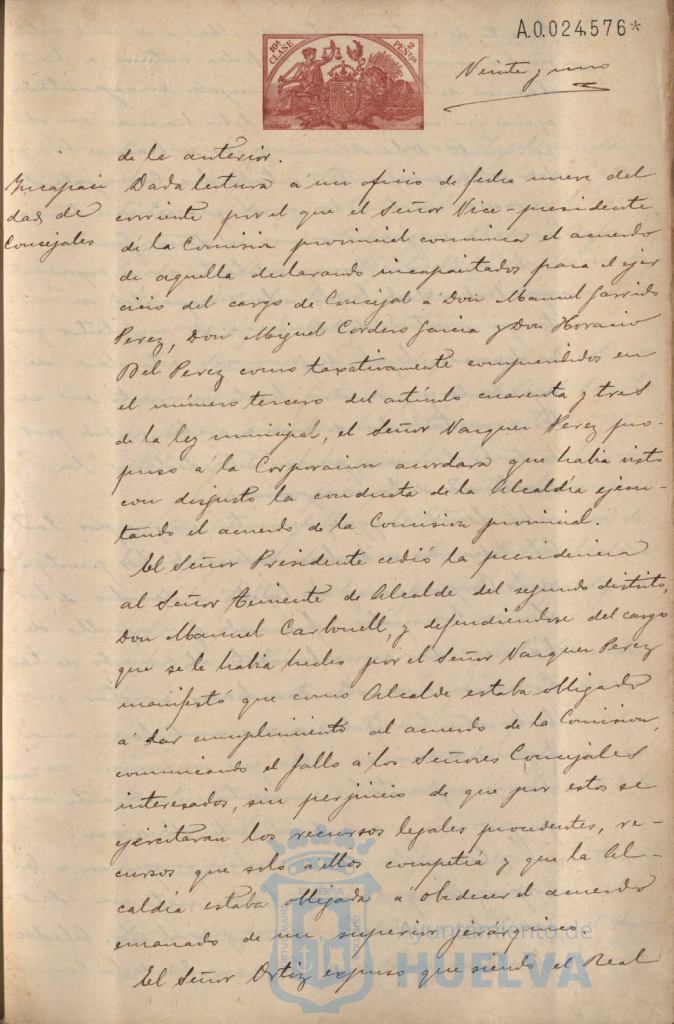 A.0.024,576*
10ª CLASE
2 PESETAS
Veinte y uno
de la anterior.
Incapaci
dad de
Concejales
Dada lectura á un oficio de fecha nueve del
corriente por el que el Señor Vice-presidente
de la Comision provincial comunica el acuerdo
de aquella declarando incapacitados para el ejer
cicio del cargo de Concejal á Don Manuel Garrido
Perez, Don Miguel Cordero Garcia y Don Horacio
Bel Perez como taxativamente comprendidos en
el número tercero del artículo cuarenta y tres
de la ley municipal, el Señor Vazquez Perez pro-
puso á la Corporacion acordara que habia visto
con disgusto la conducta de la Alcaldía ejecu-
tando el acuerdo de la Comision provincial.
El Señor Presidente cedió la presidencia
al Señor Teniente de Alcalde del segundo distrito,
Don Manuel Carbonell, y defendiendose del cargo
que se le habia hecho por el Señor Vazquez Perez
manifestó que como Alcalde estaba obligado
á dar cumplimiento al acuerdo de la Comision,
comunicando el fallo á los Señores Concejales
interesados, sin perjuicio de que por estos se
ejercitaran los recursos legales procedentes, re-
cursos que solo a ellos competia y que la Al-
caldía estaba obligada a obedecer el acuerdo
emanado de un superior jerárquico.
El Señor Ortiz expuso que siendo el Real
Ayuntamiento de
HUELVA